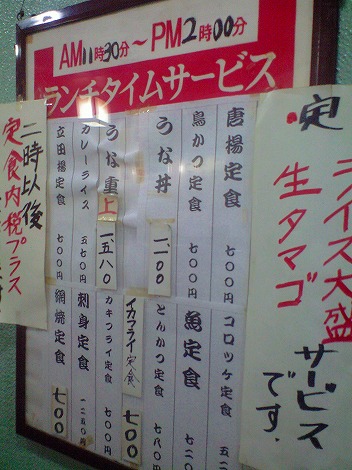 AM11時30分〜PM2時00分
ランチタイムサービス
定
ライス大盛
生タマゴ
サービスです。
唐揚定食 七〇〇円
鳥かつ定食 七〇〇円
うな丼 一、一〇〇
うな重上 一、五八〇
カレーライス 五七〇円
立田揚定食 七〇〇円
コロッケ定食 五二
魚定食 六二〇
とんかつ定食 七八〇
イカフライ定食 七〇〇
カキフライ定食 七〇〇円
刺身定食 一二五〇
網焼定食 七〇〇
二時以後
定食内税プラス